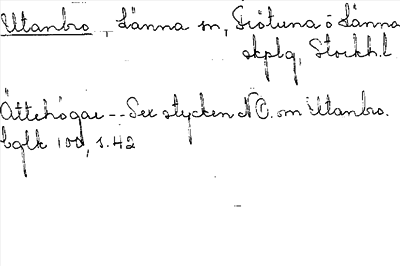 Utanbro, Länna sn, Frötuna o Länna
skplg, Stockh.l.
Ättehögar -- Sex stycken NO. om Utanbro.
Eglk 100, s. 42